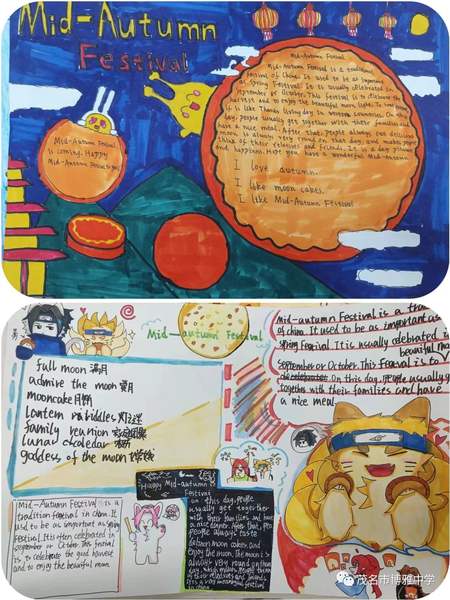 Mid-Autumn
Festival
Mid-Autumn Festival
Mid-Autumn Festival is a traditional
festival of China. It used to be as important
as Spring Festival. It is usually celebrated in
September or October. This festival is to celebrate the
harvest and to enjoy the beautiful moon light. To some
it is like Thanks living day in western countries. On this
day, people usually get together with their families and
have a nice meal. After that, people always eat delicious
moon is always very round on that day, and makes people
think of their relatives and friends. It is a day of
and happiness. Hope you have a wonderful Mid-Autumn
I love autumn.
I like moon cakes.
I like Mid-Autumn Festival
Mid-Autumn Festival
is coming. Happy
Mid-Autumn
Mid-autumn Festival
full moon 满月
admire the moon 赏月
mooncake 月饼
lantern riddles 灯谜
family reunion 家庭团聚
lunar
goddess of the moon 嫦娥
Mid-autumn Festival is a
of china. It used to be as important as
spring Festival. It is usually celebrated in
beautiful
September or October. This Festival is to
On this day, people usually
together with their families and have
a nice meal
Mid-Autumn Festival is a
tradition Festival in china. It
used to be as important as spring
Festival. It is often celebrated in
september or October. This festival
is to celebrate the god harvest
and to enjoy the beautiful moon
Happy Mid-autumn
Festival
on this day, people
usually get together
with their families and have
a nice dinner. After that, people
people always taste
delicious moon cakes, and
enjoy the moon. the moon is
always very round on that
day, which makes people think
of their relatives and friends.
茂名市博雅中学